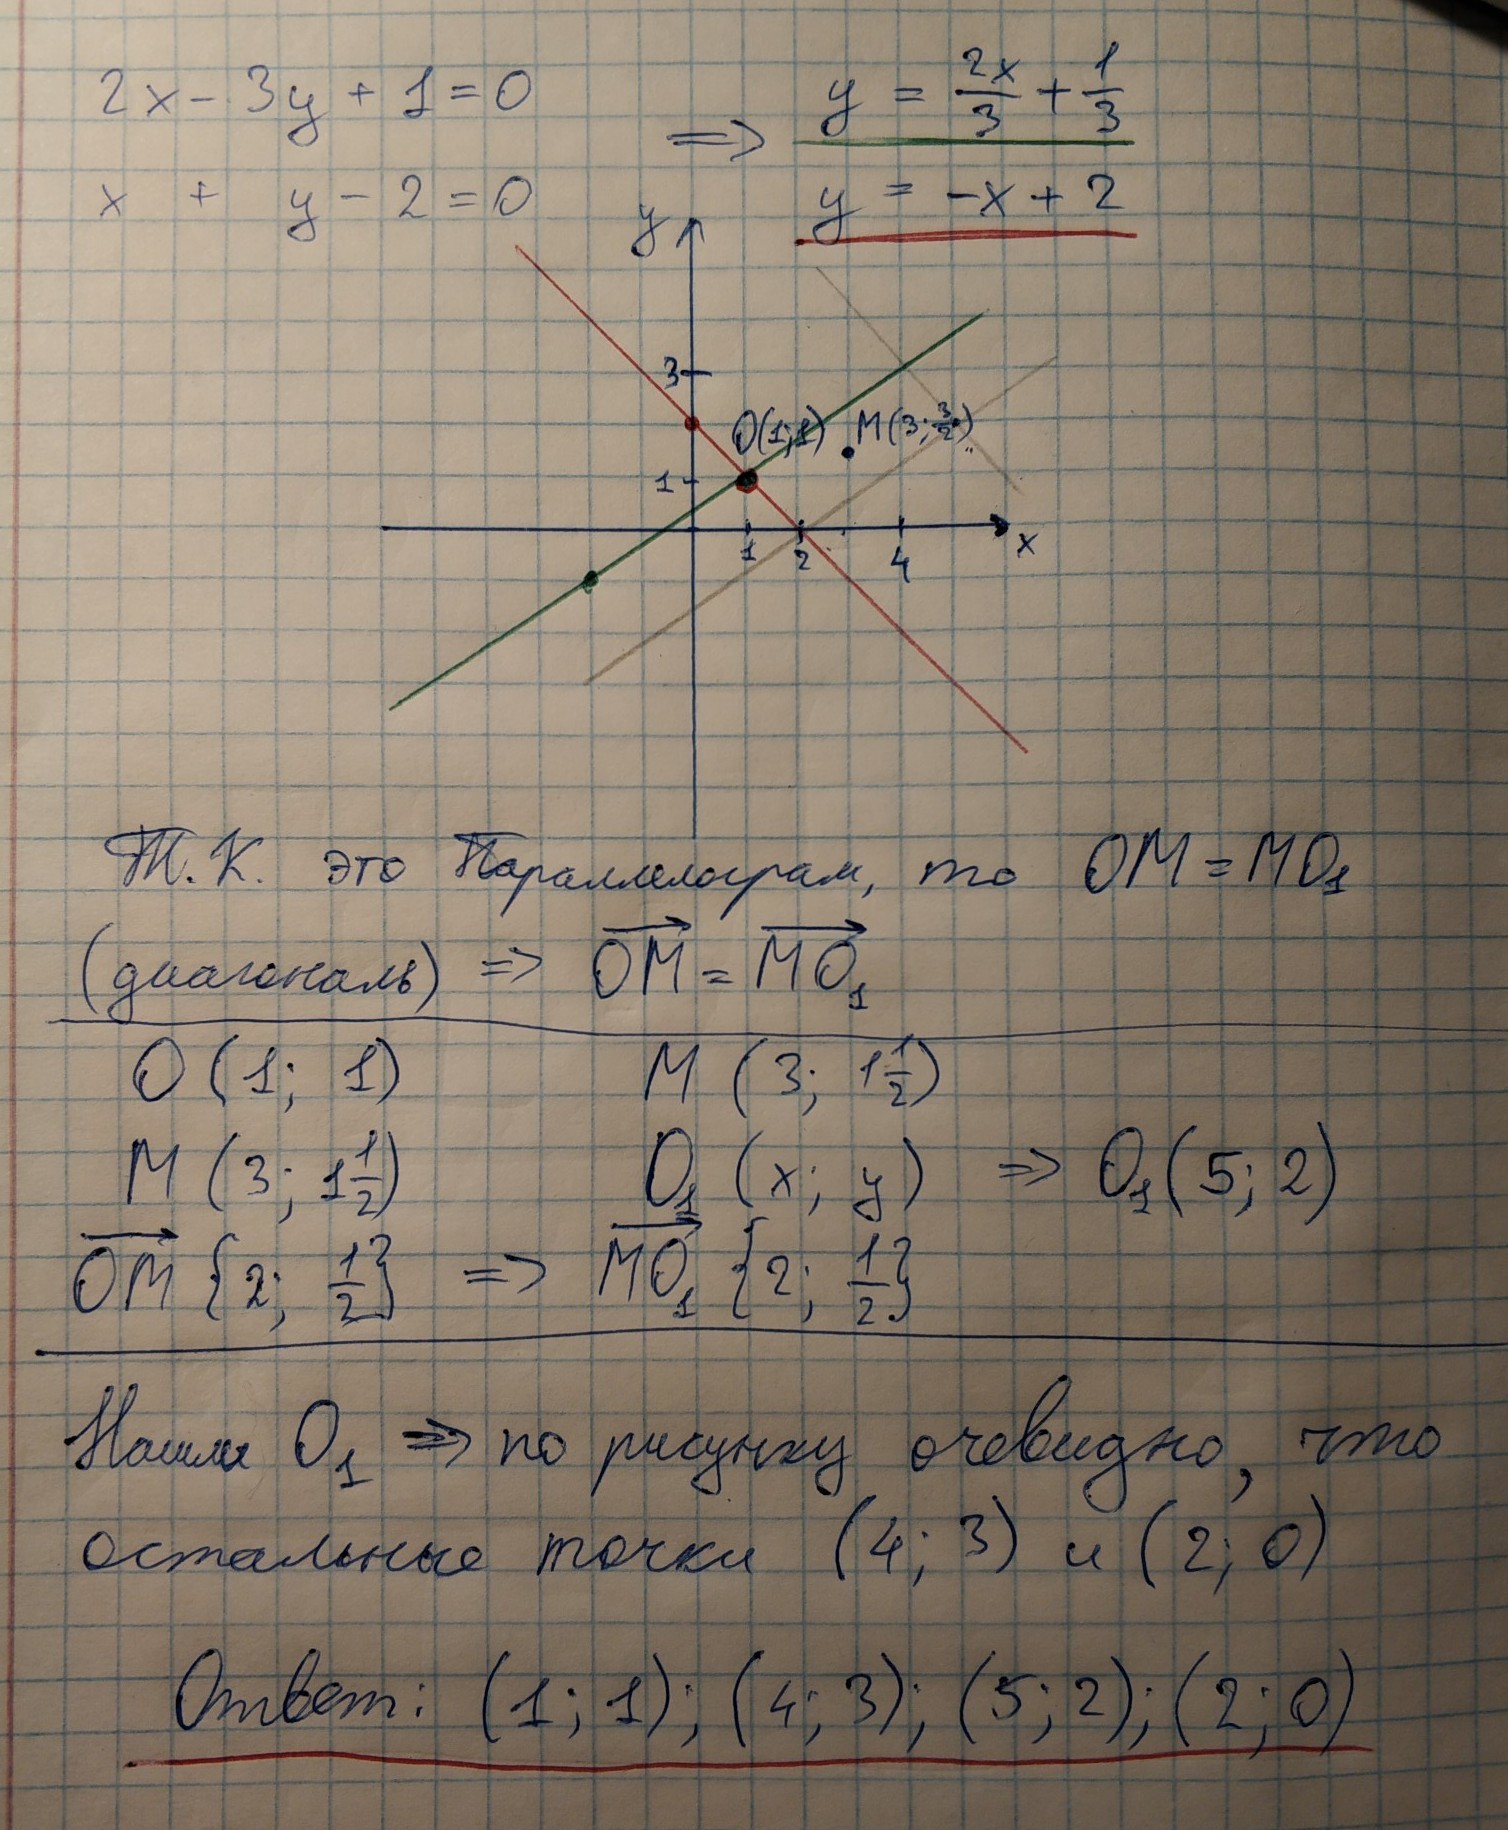 2x - 3y + 1 = 0 => y = 2x/3 + 1/3
x + y - 2 = 0 y = -x + 2
y
3
O(1;1) M(3; 3/2)
1
1 2 4 x
Т.К. это Параллелограм, то OM = MO₁
(диагональ) => \overrightarrow{OM} = \overrightarrow{MO₁}
O (1; 1) M (3; 1 1/2)
M (3; 1 1/2) O₁ (x; y) => O₁ (5; 2)
\overrightarrow{OM} {2; 1/2} => \overrightarrow{MO₁} {2; 1/2}
Нашли O₁ => по рисунку очевидно, что
остальные точки (4; 3) и (2; 0)
Ответ: (1; 1); (4; 3); (5; 2); (2; 0)